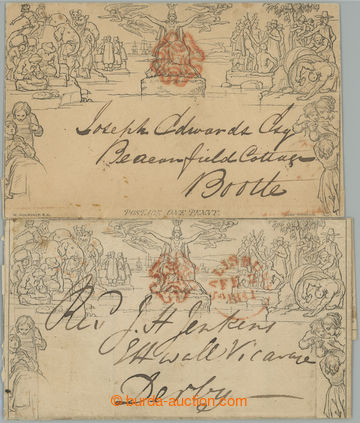 Joseph Edwards Esq
Beaconfield Cottage
Bootle
W. MULREADY. R.A.
POSTAGE ONE PENNY.
Revd J. H. Jenkins
Vicarage
Derby
© burda-auction.com